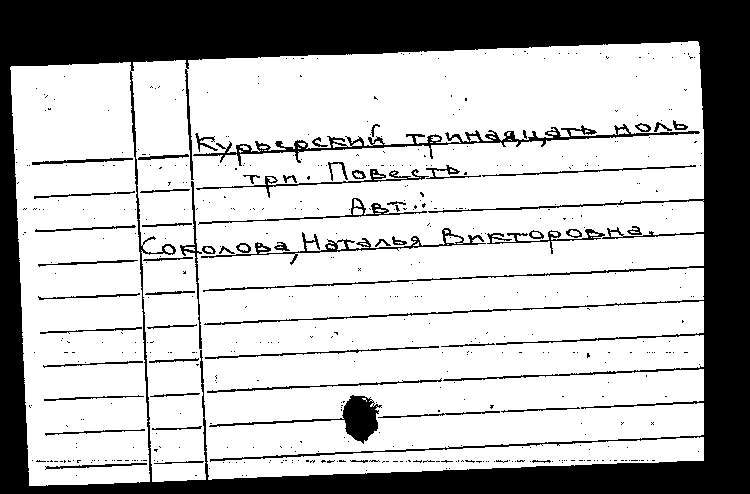 Курьерский тринадцать ноль
три. Повесть.
Авт.:
Соколова, Наталья Викторовна.